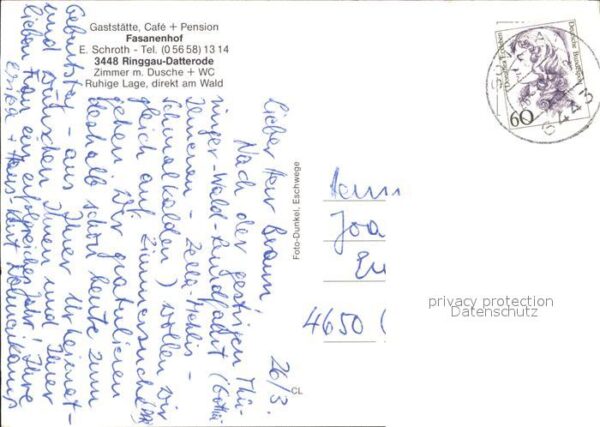 Gaststätte, Café + Pension
Fasanenhof
E. Schroth - Tel. (0 56 58) 13 14
3448 Ringgau-Datterode
Zimmer m. Dusche + WC
Ruhige Lage, direkt am Wald
26/3.
Lieber Herr Braun!
Nach der gestrigen Thü-
ringer-Wald-Rundfahrt (Gotha
Ilmenau - Zella-Mehlis -
Schmalkalden) wollen wir
gleich auf Zimmersuche
gehen. Wir gratulieren
deshalb schon heute zum
Geburtstag - aus Ihrer Urheimat -
und wünschen Ihnen und Ihrer
lieben Frau ein erfolgreiches Jahr! Ihre
Erika + Hans-Kurt
Foto-Dunkel, Eschwege
CL
Joa
4650
60
Deutsche Bundespost
privacy protection
Datenschutz